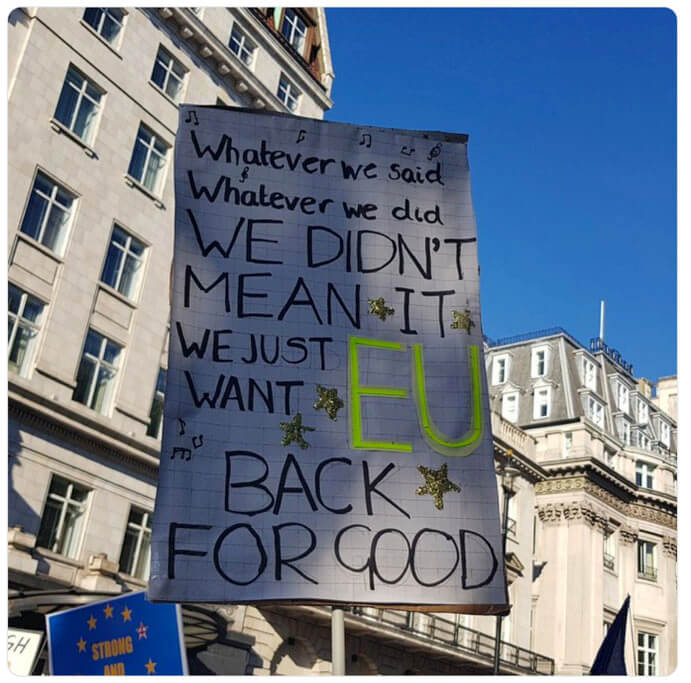 Whatever we said
Whatever we did
WE DIDN'T
MEAN IT
WE JUST
WANT EU
BACK
FOR GOOD
GH
STRONG
AND